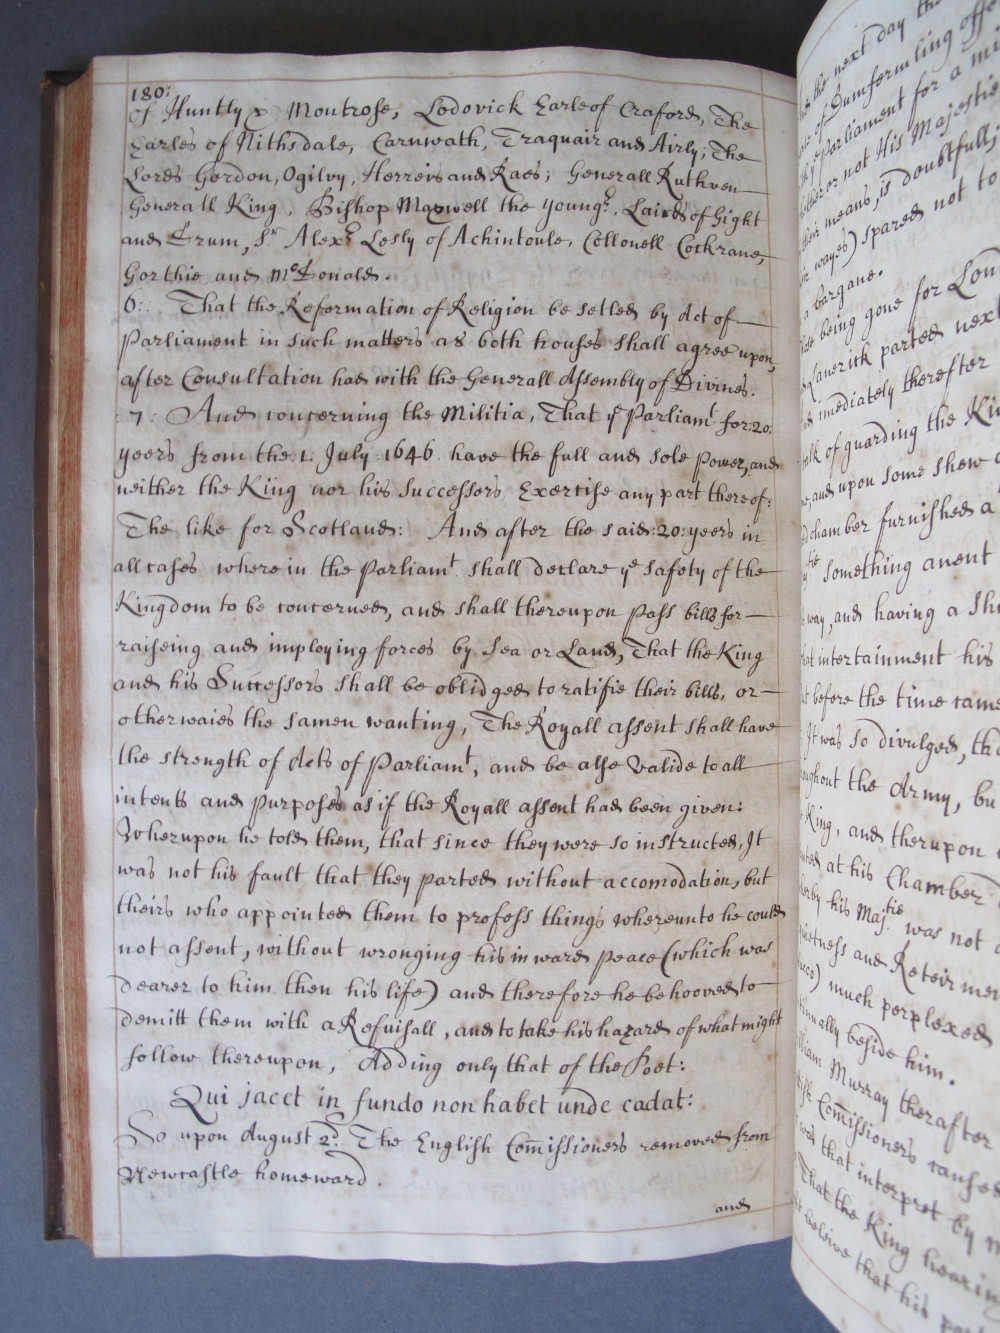 180:
Of Huntly & Montrose, Lodovick Earle of Craford, The
Earles of Nithsdale, Carnwath, Traquair and Airly; The
Lords Gordon, Ogilvy, Herreis and Raes; Generall Ruthven
Generall King, Bishop Maxwell the youngr, Lairds of Gight
and Drum, Sr Alexr Lesly of Achintoule, Collonell Cockrane,
Gorthie and McDonald.
6: That the Reformation of Religion be setled by Act of
Parliament in such matters as both houses shall agree upon,
after Consultation had with the Generall Assembly of Divines.
:7: And concerning the Militia, That ye Parliamt for:20:
yeers from the 1. July 1646 have the full and sole Power, and
neither the King nor his Successors Exercise any part thereof:
The like for Scotland: And after the said:20:yeers in
all cases where in the Parliamt shall declare ye safety of the
Kingdom to be concerned, and shall thereupon pass bills for
raiseing and imploying forces by Sea or Land, That the King
and his Successors shall be oblidged to ratifie their bills, or
otherwaies the samen wanting, The Royall assent shall have
the strength of Acts of Parliamt, and be alse valide to all
intents and purposes as if the Royall assent had been given:
Wherupon he told them, that since they were so instructed, It
was not his fault that they parted without accomodation, but
theirs who appointed them to profess things whereunto he could
not assent, without wronging his inward peace (which was
dearer to him then his life) and therefore he behooved to
demitt them with a Refuisall, and to take his hazard of what might
follow thereupon, Adding only that of the Poet:
Qui jacet in fundo non habet unde cadat:
So upon August 2d. The English Comissioners removed from
Newcastle homeward.
and
the next day
of Dumfermling
Parliament for a
or not His Majestie
means, is doubtfull,
wayes) spared not to
a bargane.
being gone for
Lanerick parted next
imediately thereafter
of guarding the
and upon some shew
chamber furnished a
something anent
way, and having a
intertainment his
before the time came
It was so divulged,
the Army,
King, and therupon
at his Chamber
his Majtie was not
and
much perplexed
beside him.
Murray therafter
Comissioners caused
that interpret by
That the King hearing
beleive that his